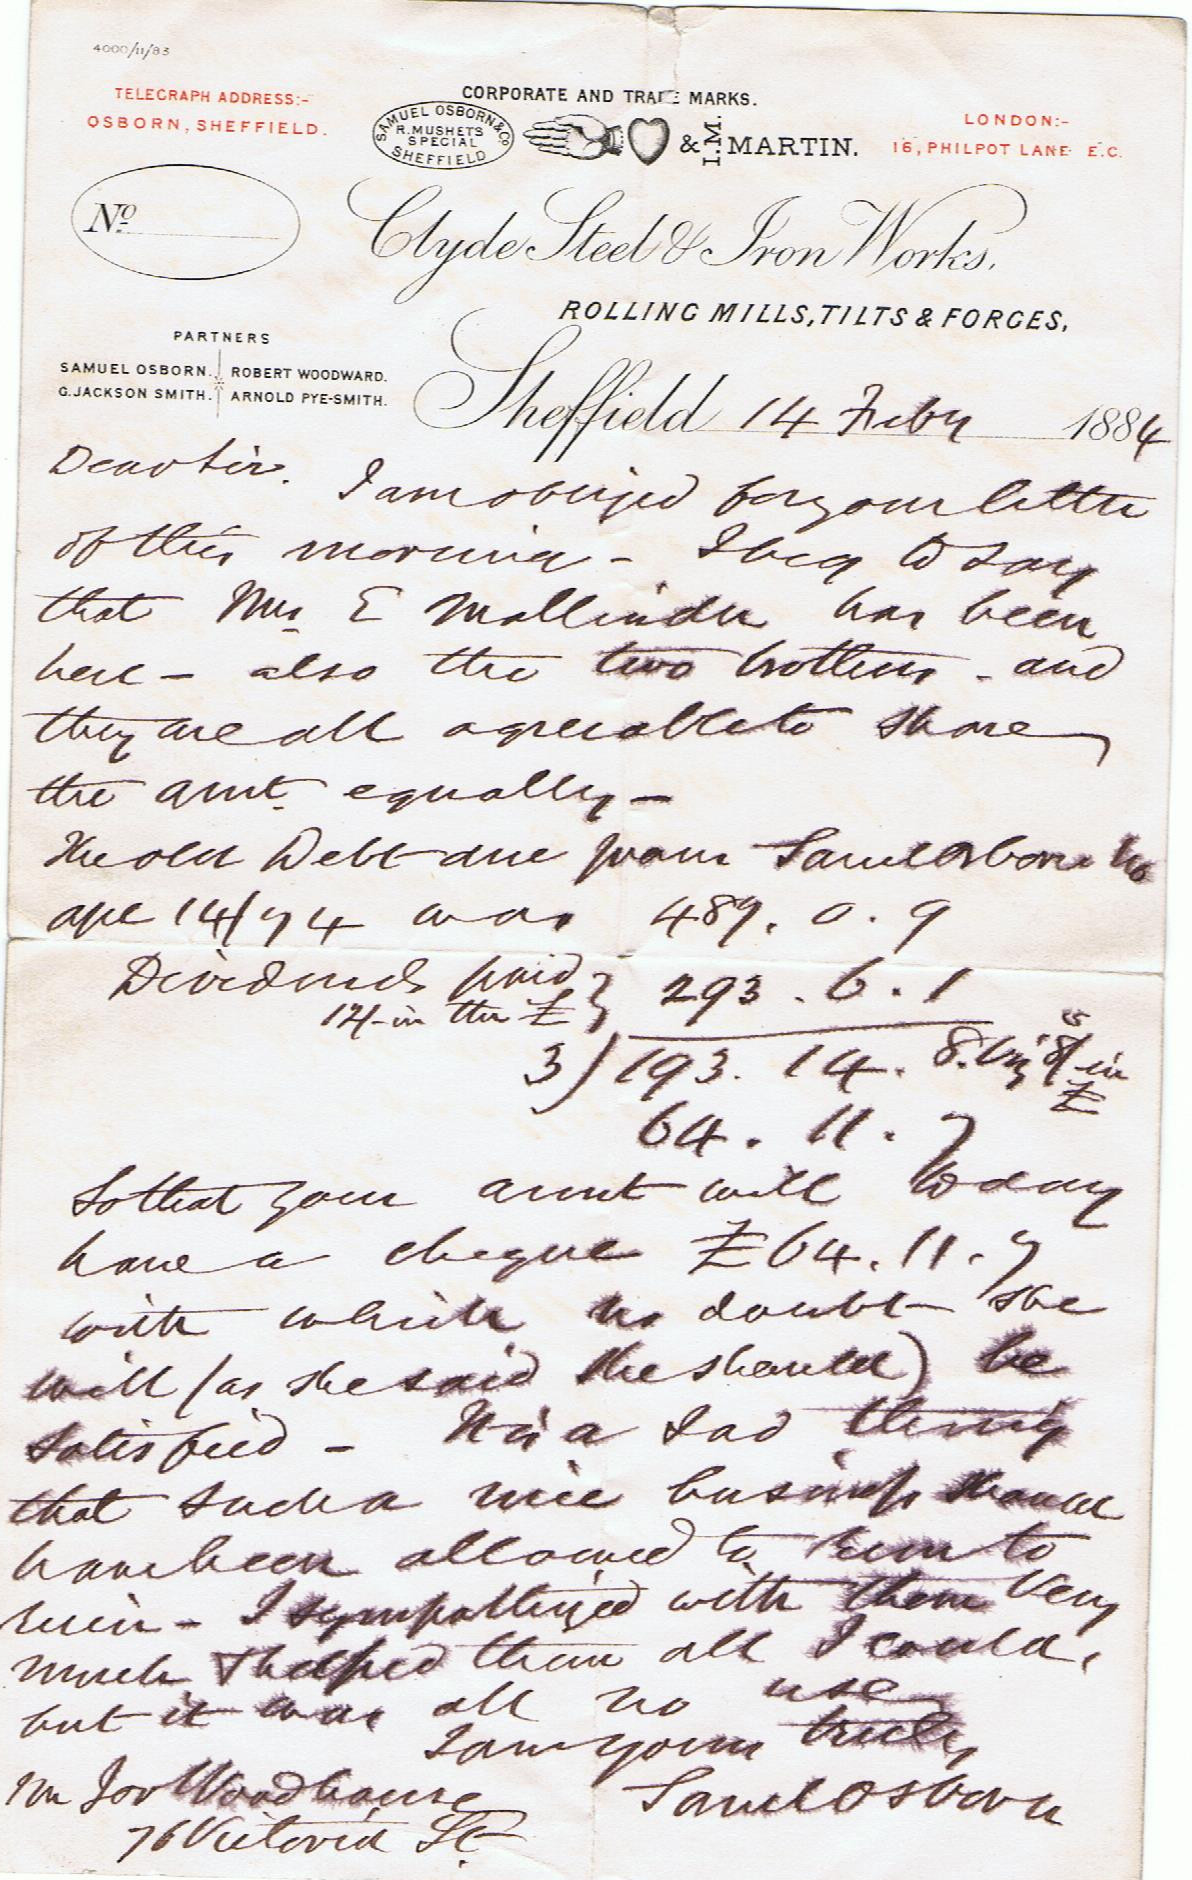 4000/11/83
TELEGRAPH ADDRESS:-
OSBORN, SHEFFIELD.
CORPORATE AND TRADE MARKS.
SAMUEL OSBORN & Co
R. MUSHETS
SPECIAL
SHEFFIELD
& I.M. MARTIN.
LONDON:-
16, PHILPOT LANE E.C.
No.
Clyde Steel & Iron Works.
ROLLING MILLS, TILTS & FORGES,
PARTNERS
SAMUEL OSBORN. ROBERT WOODWARD.
G. JACKSON SMITH. ARNOLD PYE-SMITH.
Sheffield 14 Feby 1884
Dear Sir.
I am obliged for your letter
of this morning - I beg to say
that Mrs E Mallinder has been
here - also the two brothers - and
they are all agreeable to share
the amt. equally -
The old Debt due from Saml Osborn & Co
14/74 was 489. 0. 9
Dividends paid } 293. 6. 1
12/- in the £
3) 193. 14. 8. viz 8/ in
£
64. 11. 7
So that your aunt will today
have a cheque £64. 11. 7
with which no doubt she
will (as she said she should) be
satisfied - It is a sad thing
that such a nice business should
have been allowed to run to
ruin - I sympathized with them very
much & helped them all I could,
but it was all no use
I am yours truly
Saml Osborn
Mr Jos Woodhouse
76 Victoria St.